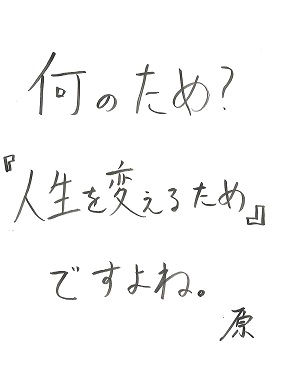 何のため?
『人生を変えるため』
ですよね。
原